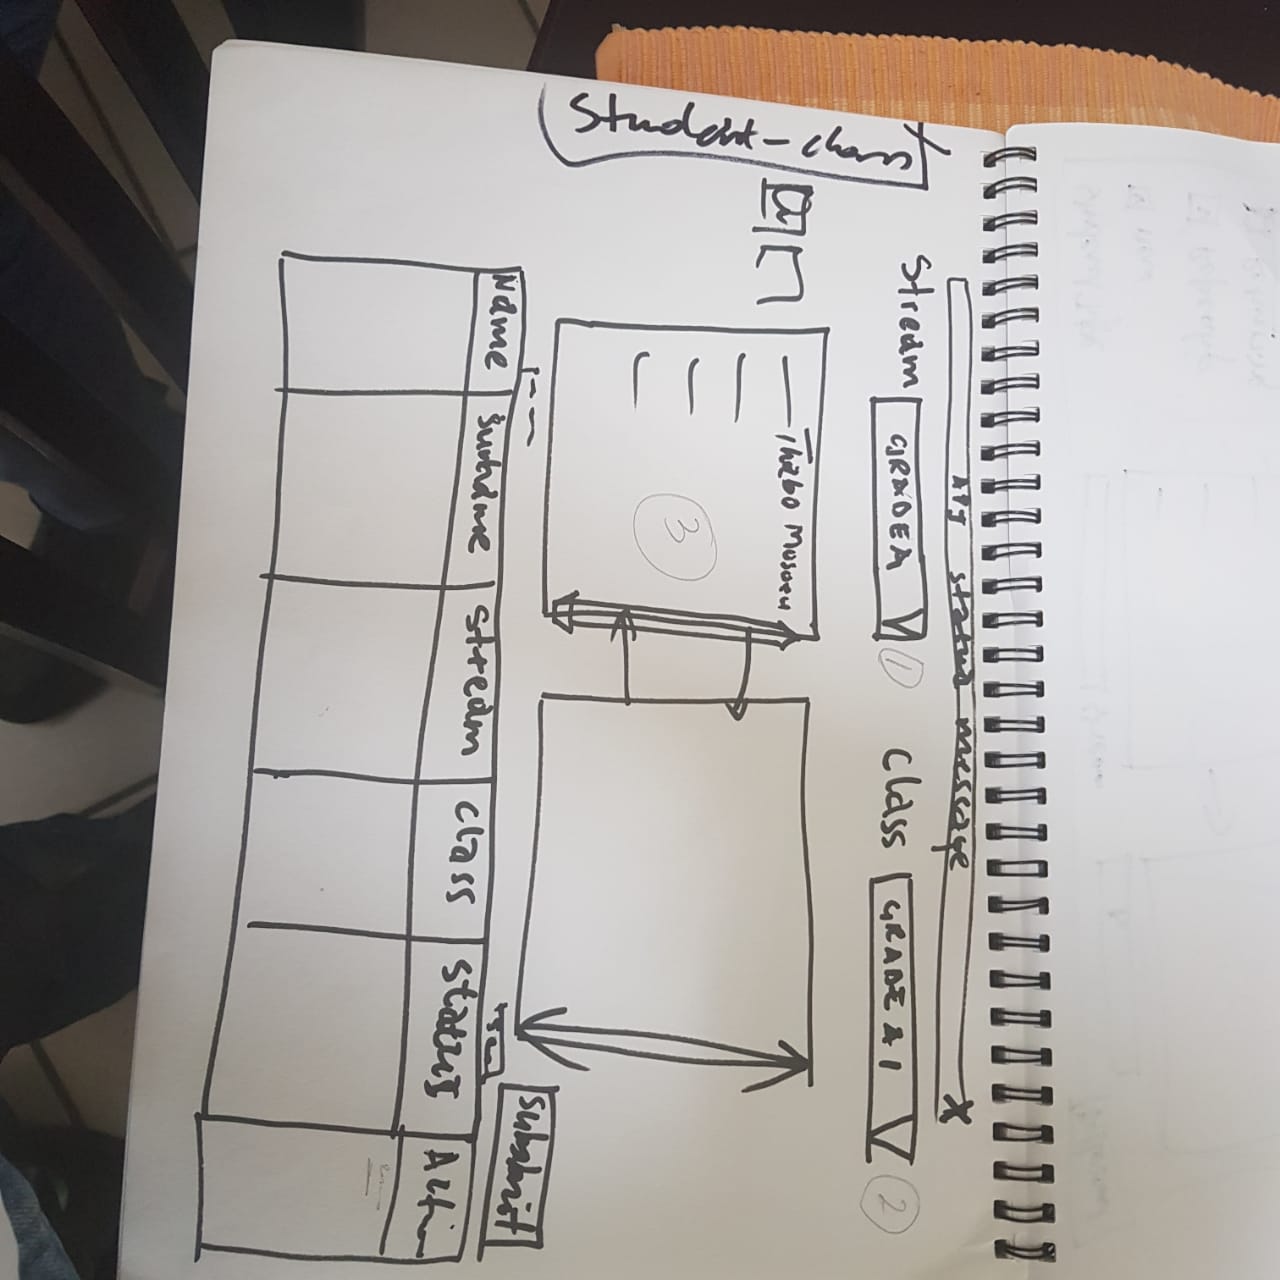 Student-class
API status message X
Stream GRADE A 1 Class GRADE A 1 2
Thabo
3
Submit
Name Surname Stream Class Status Action